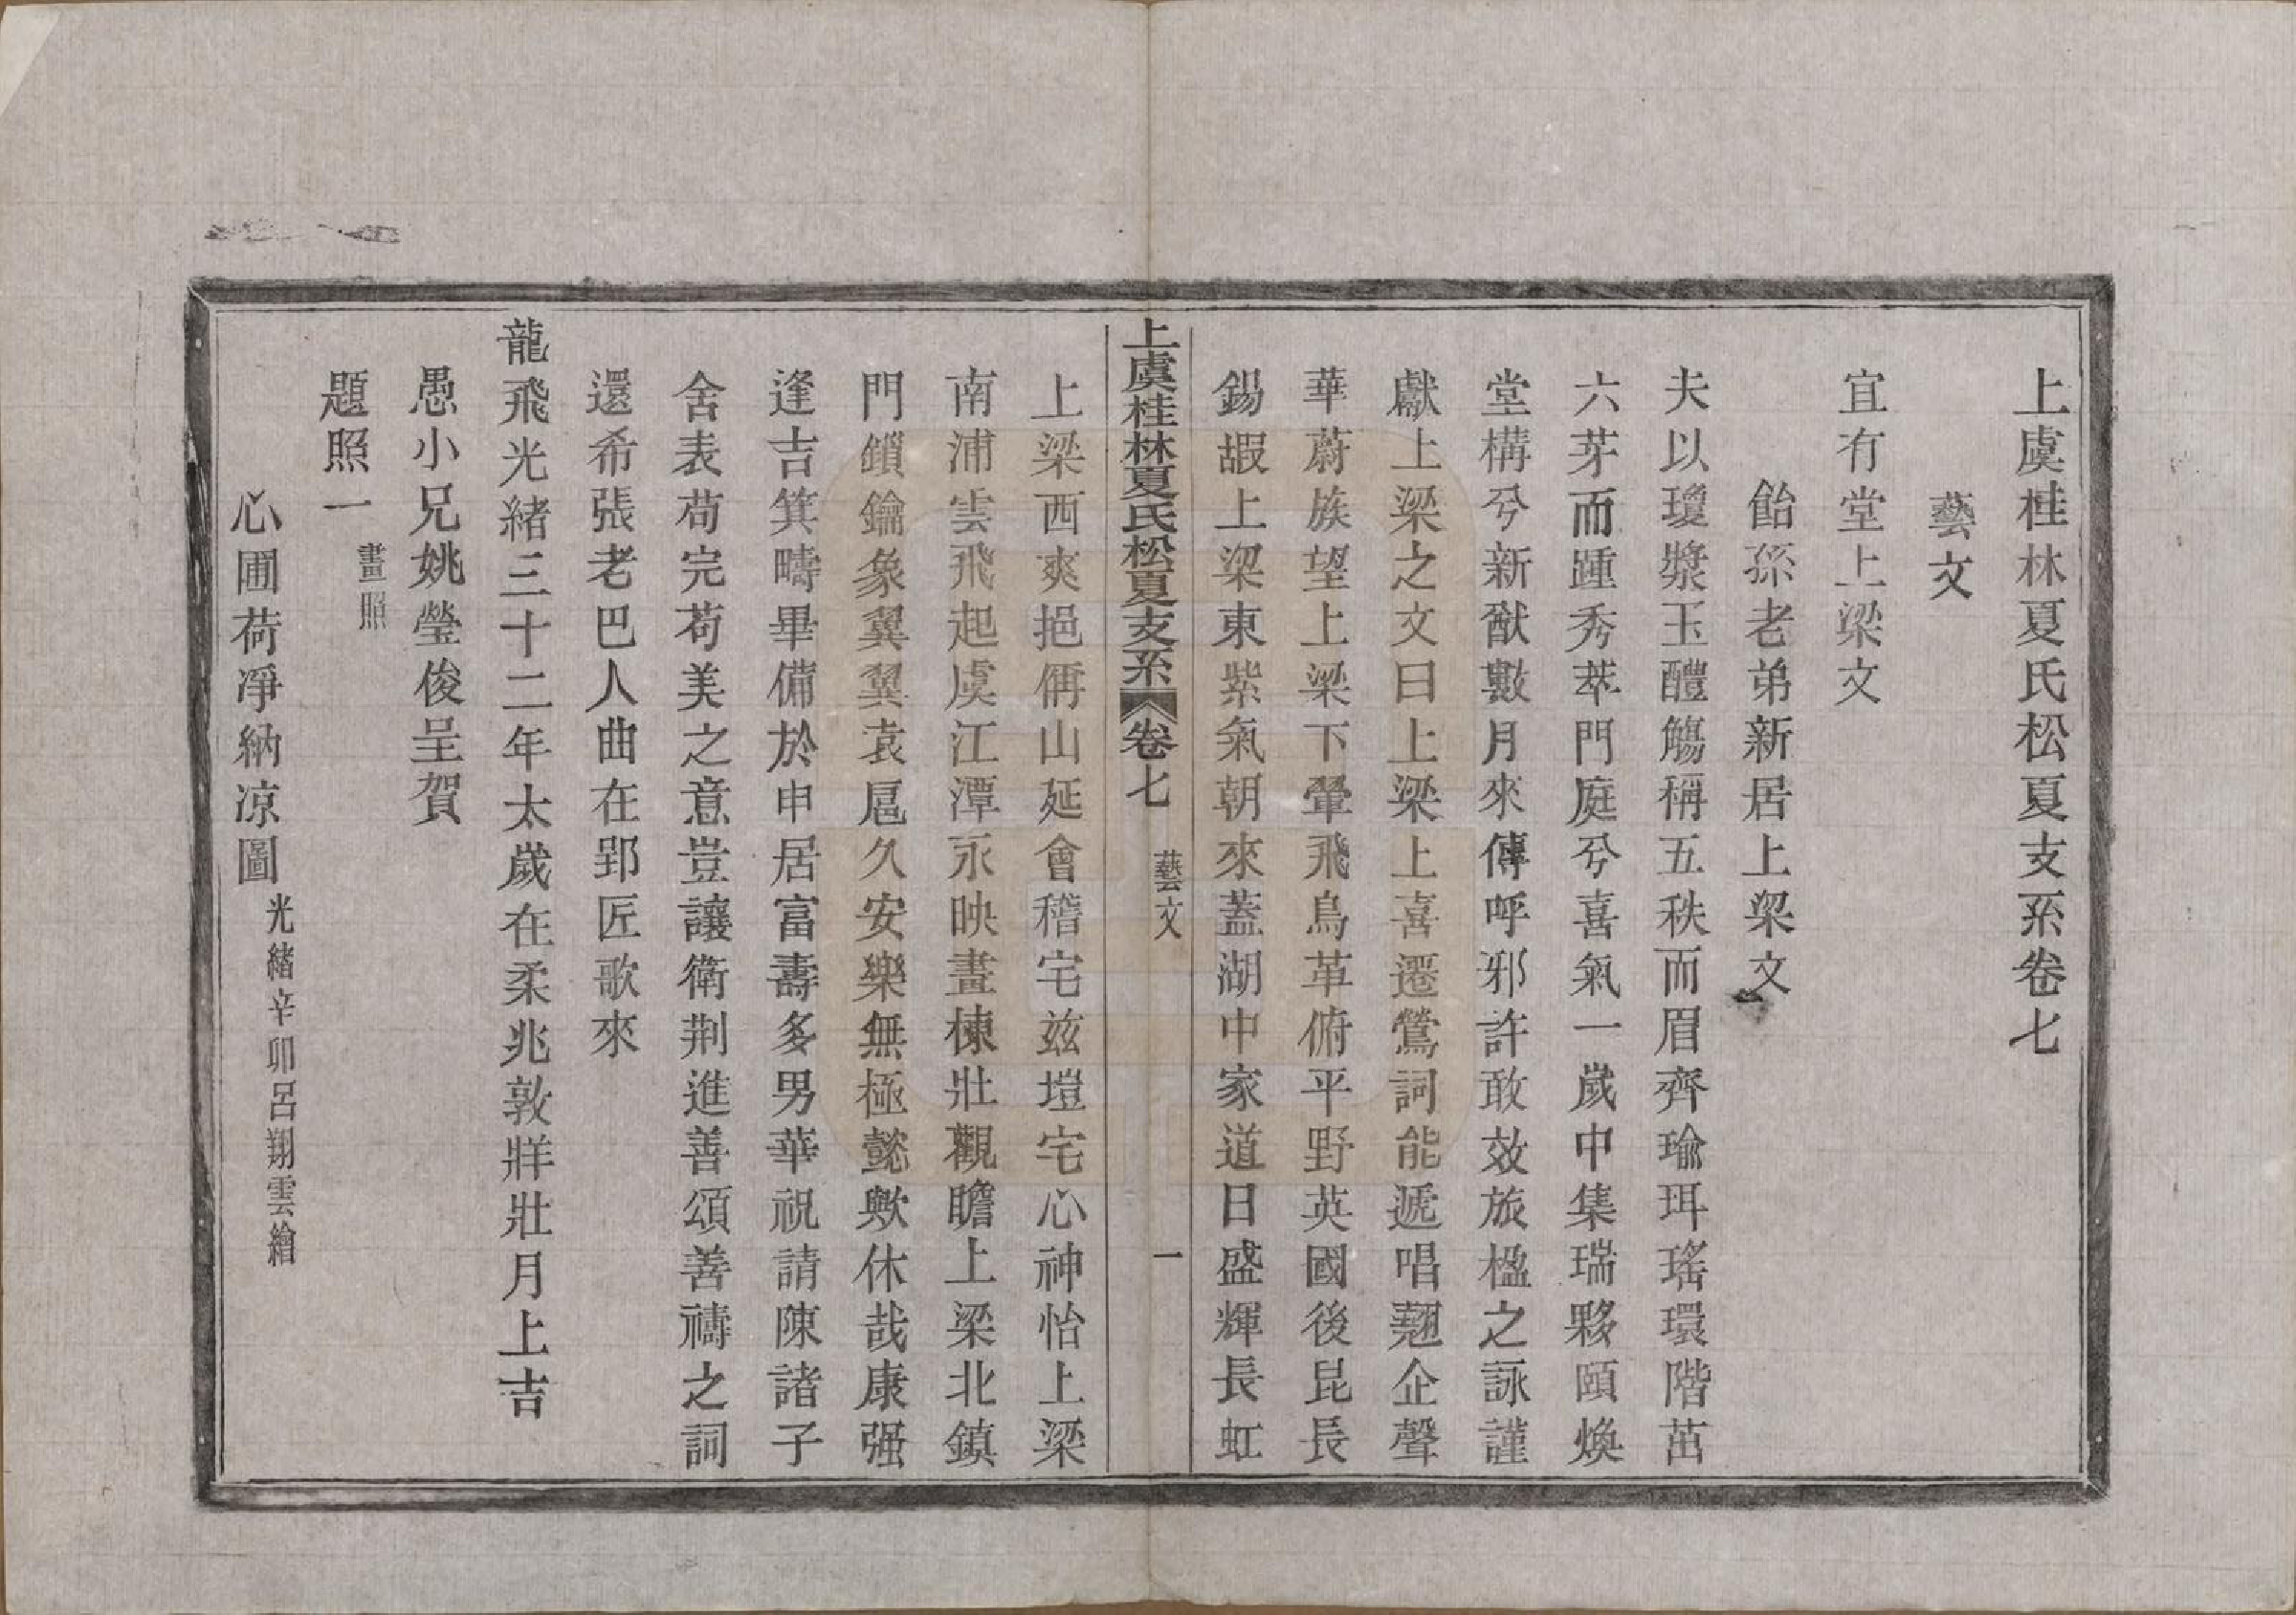 上虞桂林夏氏松夏支系卷七
藝文
宜有堂上梁文
飴孫老弟新居上梁文
夫以瓊漿玉醴觴稱五秩而眉齊瑜珥瑤環階茁
六芽而踵秀萃門庭兮喜氣一歲中集瑞夥頤煥
堂構兮新猷數月來傳呼邪許敢效旅楹之詠謹
獻上梁之文曰上梁上喜遷鶯詞能遞唱翹企聲
華蔚族望上梁下翬飛鳥革俯平野英國後昆長
錫嘏上梁東紫氣朝來蓋湖中家道日盛輝長虹
上虞桂林夏氏松夏支系 卷七 藝文 一
上梁西爽挹偁山延會稽宅兹塏宅心神怡上梁
南浦雲飛起虞江潭永映畫棟壯觀瞻上梁北鎮
門鎖鑰象翼翼袁扈久安樂無極懿歟休哉康强
逢吉箕疇畢備於申居富壽多男華祝請陳諸子
舍表苟完苟美之意豈讓衛荆進善頌善禱之詞
還希張老巴人曲在郢匠歌來
龍飛光緒三十二年太歲在柔兆敦牂壯月上吉
愚小兄姚瑩俊呈賀
題照一 畫照
心圃荷凈納凉圖 光緒辛卯呂翔雲繪